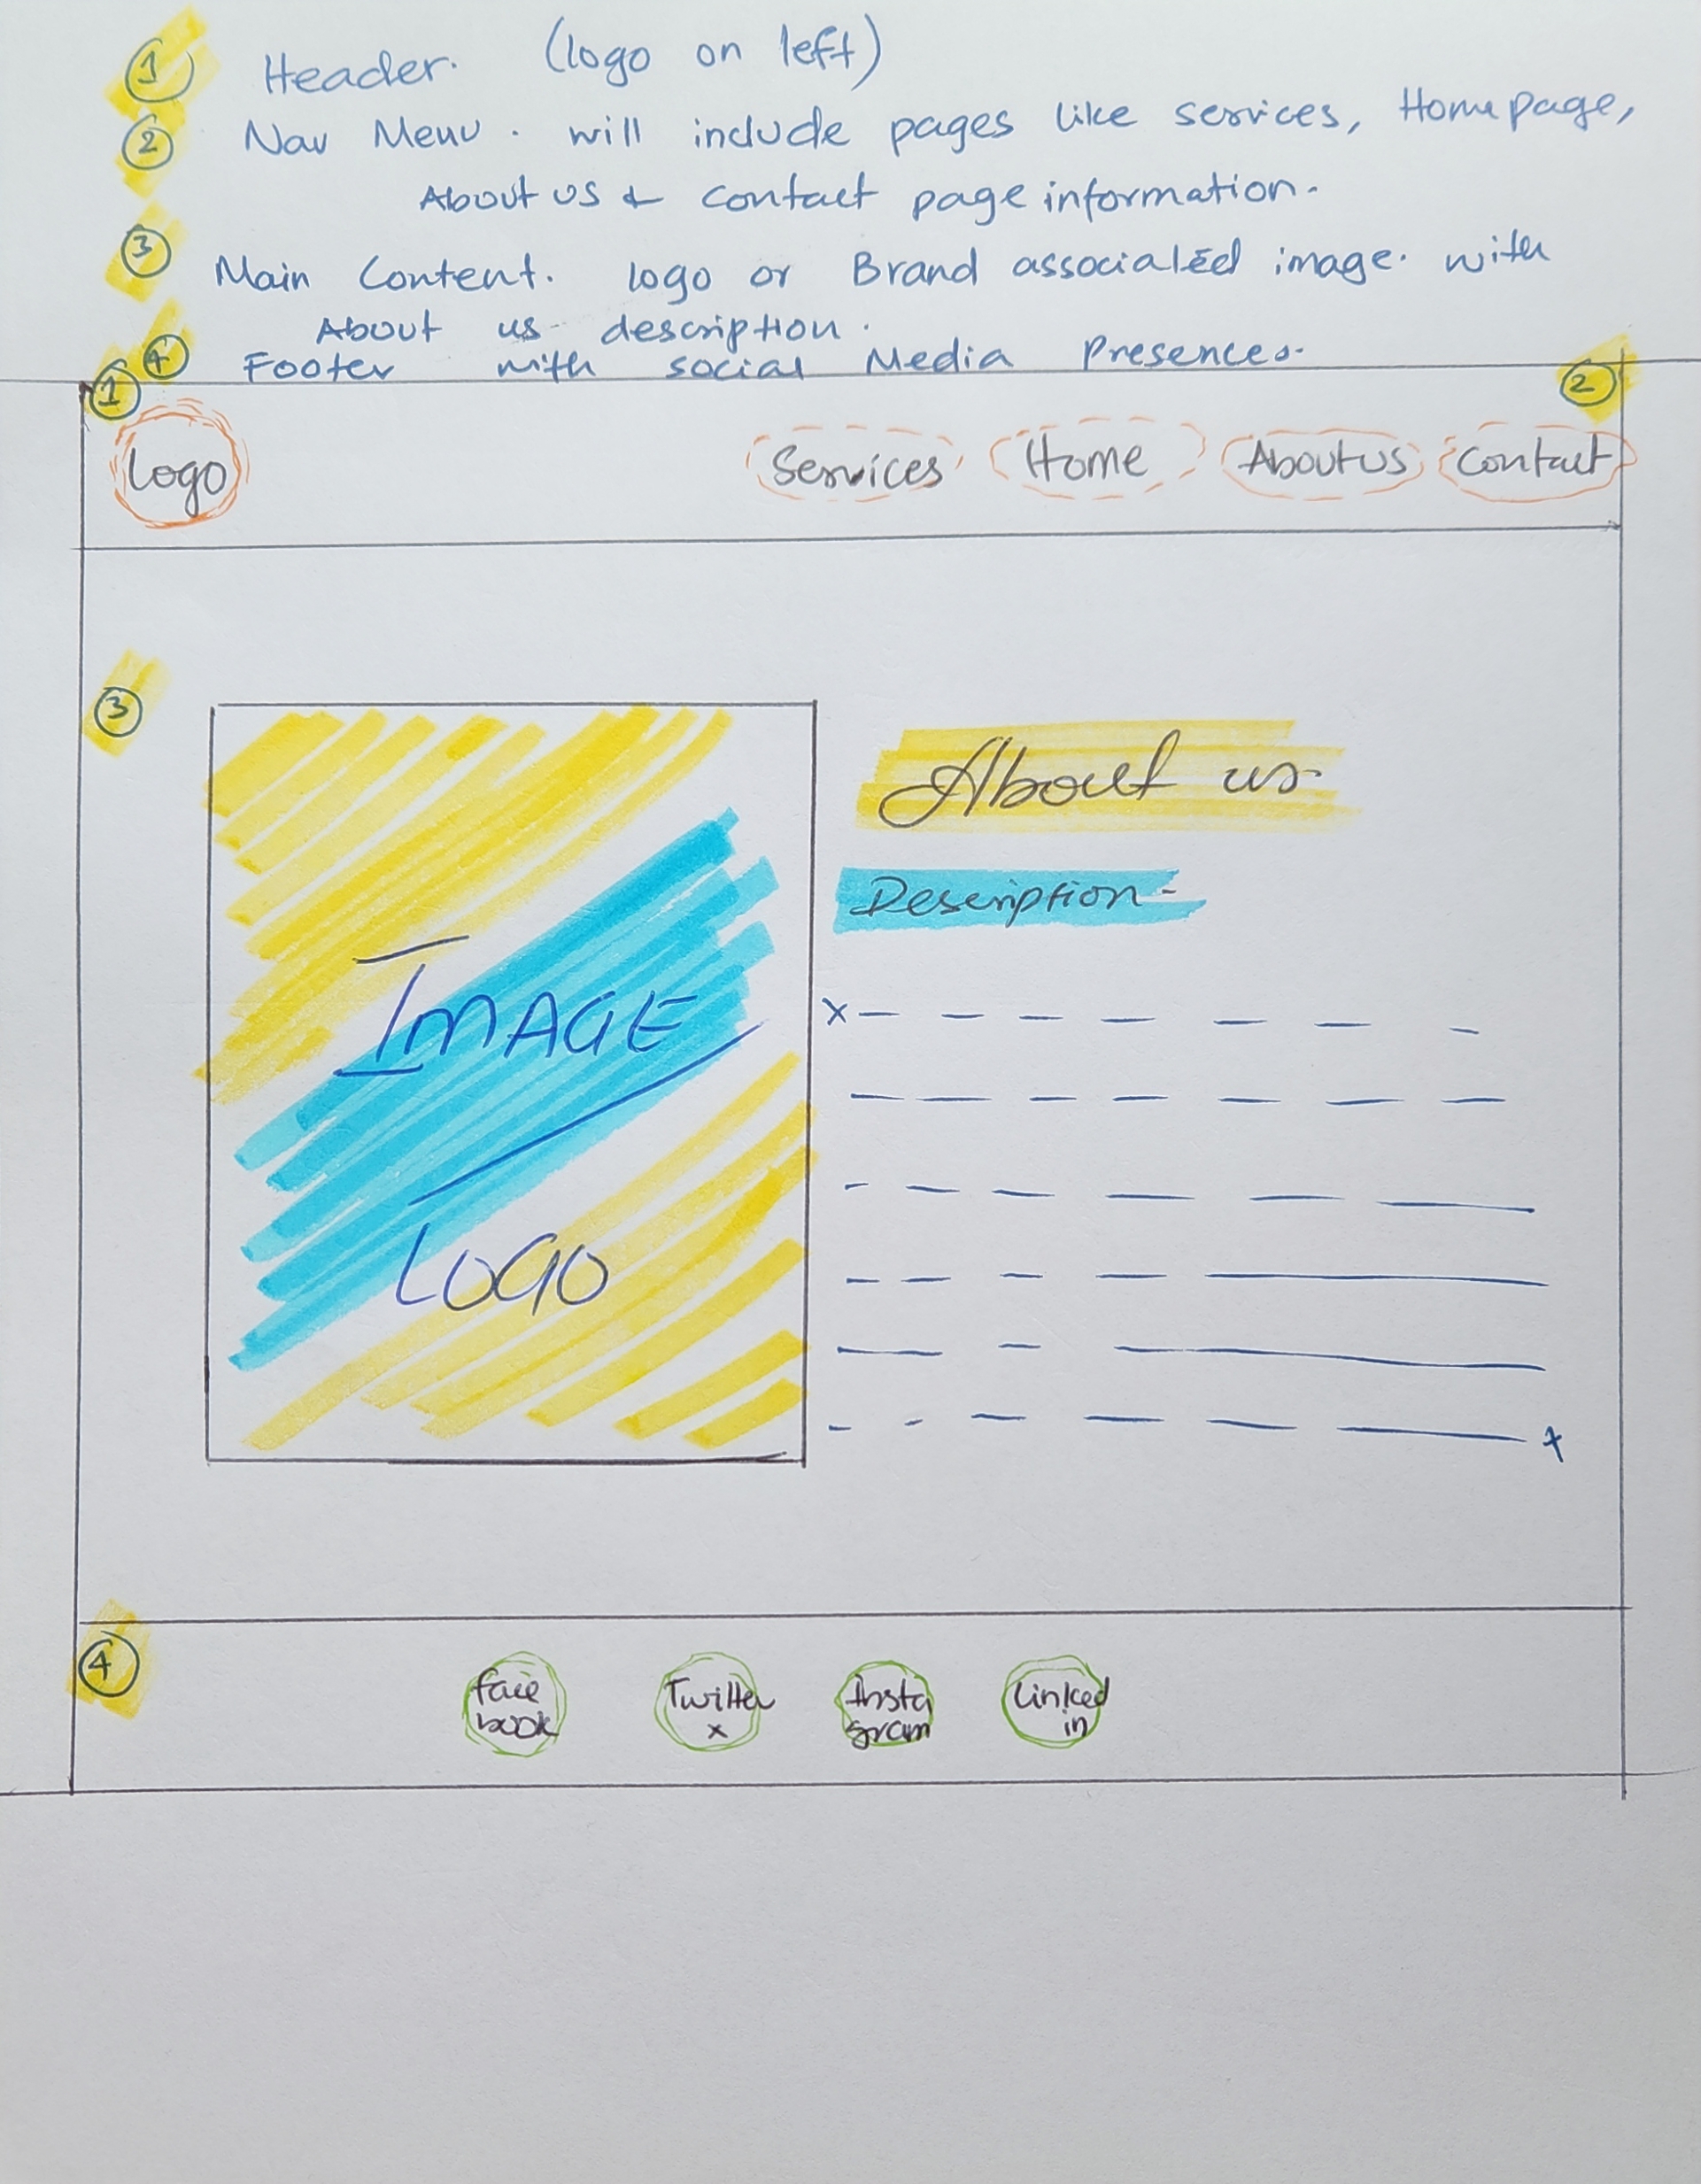 1 Header. (logo on left)
2 Nav Menu. will include pages like services, Homepage,
About us & contact page information.
3 Main Content. logo or Brand associated image. with
About us description.
4 Footer with social Media Presences.
1 2
Logo Services Home About us Contact
3
About us
Description-
IMAGE
/
LOGO
4
face
book
Twitter
x
Insta
gram
Linked
in